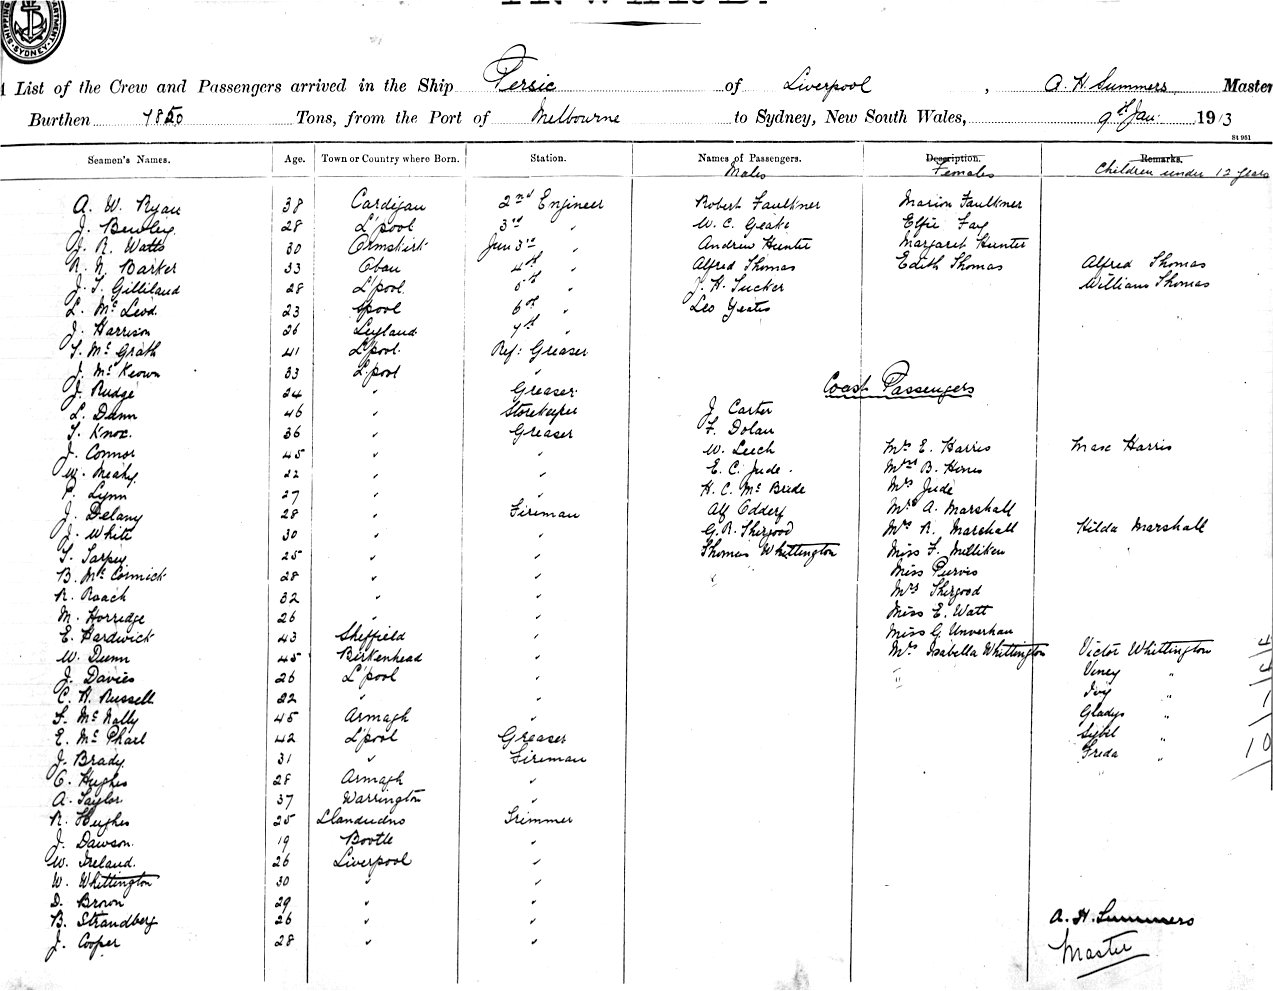 SHIPPING DEPARTMENT SYDNEY
INWARD.
A List of the Crew and Passengers arrived in the Ship Persic of Liverpool, A. H. Summers Master
Burthen 7850 Tons, from the Port of Melbourne to Sydney, New South Wales, 9th Jan: 1913
St 951
Seamen's Names. Age. Town or Country where Born. Station. Names of Passengers. Description. Remarks.
Males Females Children under 12 years
A. W. Ryan 38 Cardigan 2nd Engineer Robert Faulkner Marion Faulkner
J. Bewley 28 L'pool 3rd " W. C. Geake Elfie Fay
J. R. Watts 30 Ormskirk Jun 3rd " Andrew Hunter Margaret Hunter
R. N. Barker 33 Oban 4th " Alfred Thomas Edith Thomas Alfred Thomas
J. T. Gilliland 28 L'pool 5th " J. H. Tucker William Thomas
L. McLeod. 23 L'pool 6th " Leo Yeates
J. Harrison 26 Leyland 7th "
T. McGrath 41 L'pool. Ref: Greaser
J. McKeown 33 L'pool "
J. Rudge 24 " Greaser Coast Passengers
L. Dunn 46 " Storekeeper J. Carter
T. Knox. 36 " Greaser F. Dolan
J. Connor 45 " " W. Leech Mrs E. Harris Max Harris
W. Meahy. 22 " " E. C. Jude. Mrs B. Hines
P. Lynn 27 " " H. C. McBride Mrs Jude
J. Delany 28 " Fireman Alf Oddey Mrs A. Marshall
J. White 30 " " G. R. Shergood Mrs R. Marshall Hilda Marshall
T. Tarpey 25 " " Thomas Whittington Miss F. Milliken
B. McCormick 28 " " Miss Purves
R. Roach 32 " " Mrs Shergood
M. Horridge 26 " " Miss E. Watt
E. Hardwick 43 Sheffield " Miss G. Unverhau
W. Dunn 45 Birkenhead " Mrs Isabella Whittington Victor Whittington
J. Davies 26 L'pool " Viney "
C. H. Russell 22 " " Ivy "
F. McNally 45 Armagh " Gladys "
E. McPhail 42 L'pool Greaser Sybil "
J. Brady 31 " Fireman Freda " 10
C. Hughes 28 Armagh "
A. Taylor 37 Warrington "
R. Hughes 25 Llandudno Trimmer
J. Dawson. 19 Bootle "
W. Ireland. 26 Liverpool "
W. Whittington 30 " "
D. Brown 29 " "
B. Strandberg 26 " " A. H. Summers
J. Cooper 28 " " Master